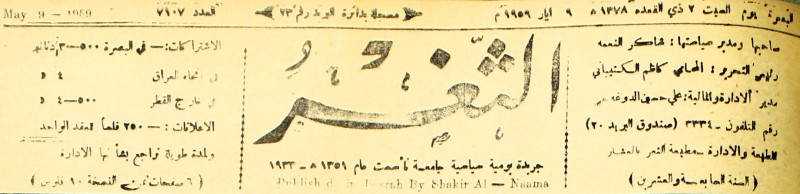 البصرة يوم السبت ٢ ذي القعده ١٣٧٨ ه ٩ ايار ١٩٥٩ م مسجلة بدائرة البريد رقم ٢٣ العدد ٧١٠٧ May 9 - 1959
صاحبها ومدير سياستها: شاكر النعمه
رئيس التحرير: المحامي كاظم
مدير الادارة والمالية: علي حسين
رقم التلفون - ٣٣٣٤ (صندوق البريد ٢٠)
الطبعة والادارة - مطبعة الثغر بالعشار
(السنة الخامسة والعشرين)
الثغر
جريدة يومية سياسية جامعة تأسست عام ١٣٥١ ه - ١٩٣٣
Published in Basrah By Shakir Al - Naama
الاشتراكات: - في البصرة ٥٠٠-٣ دنانير
في انحاء العراق ٤ د
في خارج القطر ٥٠٠-٤ د
الاعلانات: - ٢٥٠ فلساً للعقد الواحد
ولمدة طويلة تراجع بشأنها الادارة
(٦ صفحات ثمن النسخة ١٠ فلوس)